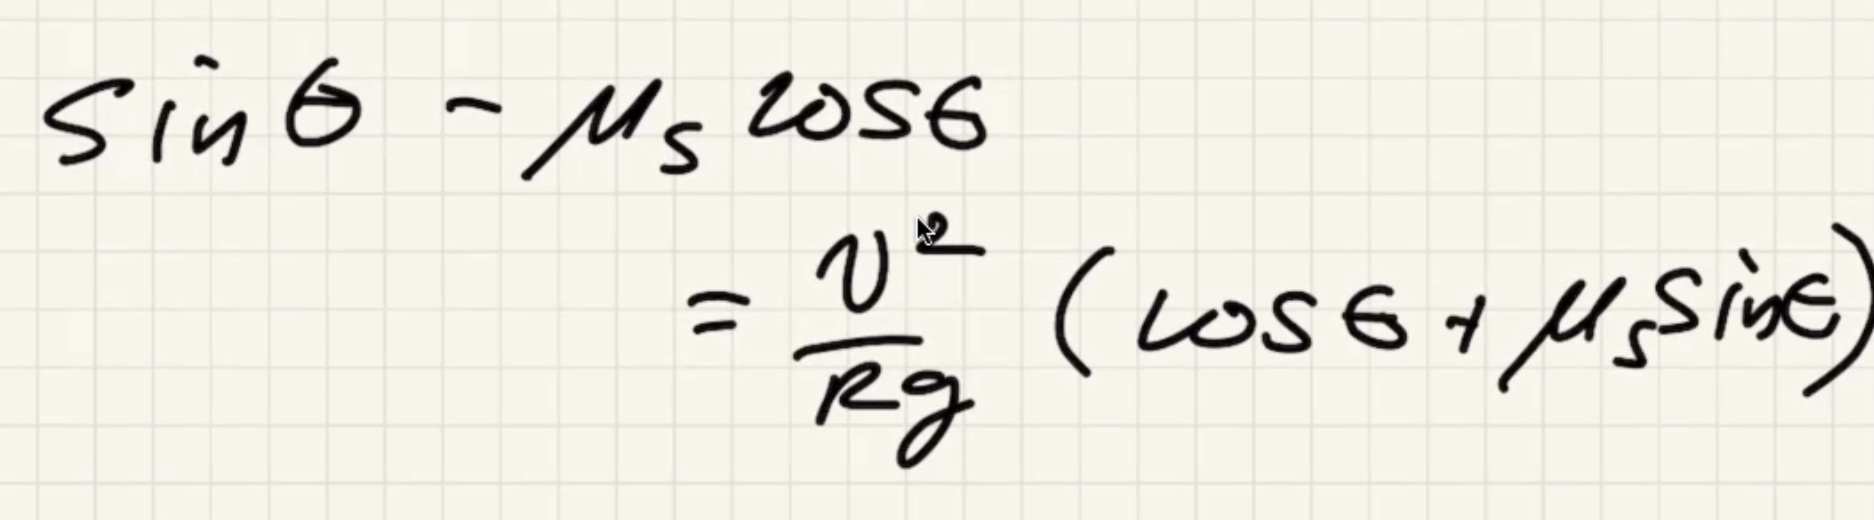 sin θ - μs cos θ
= v²/Rg (cos θ + μs sin θ)